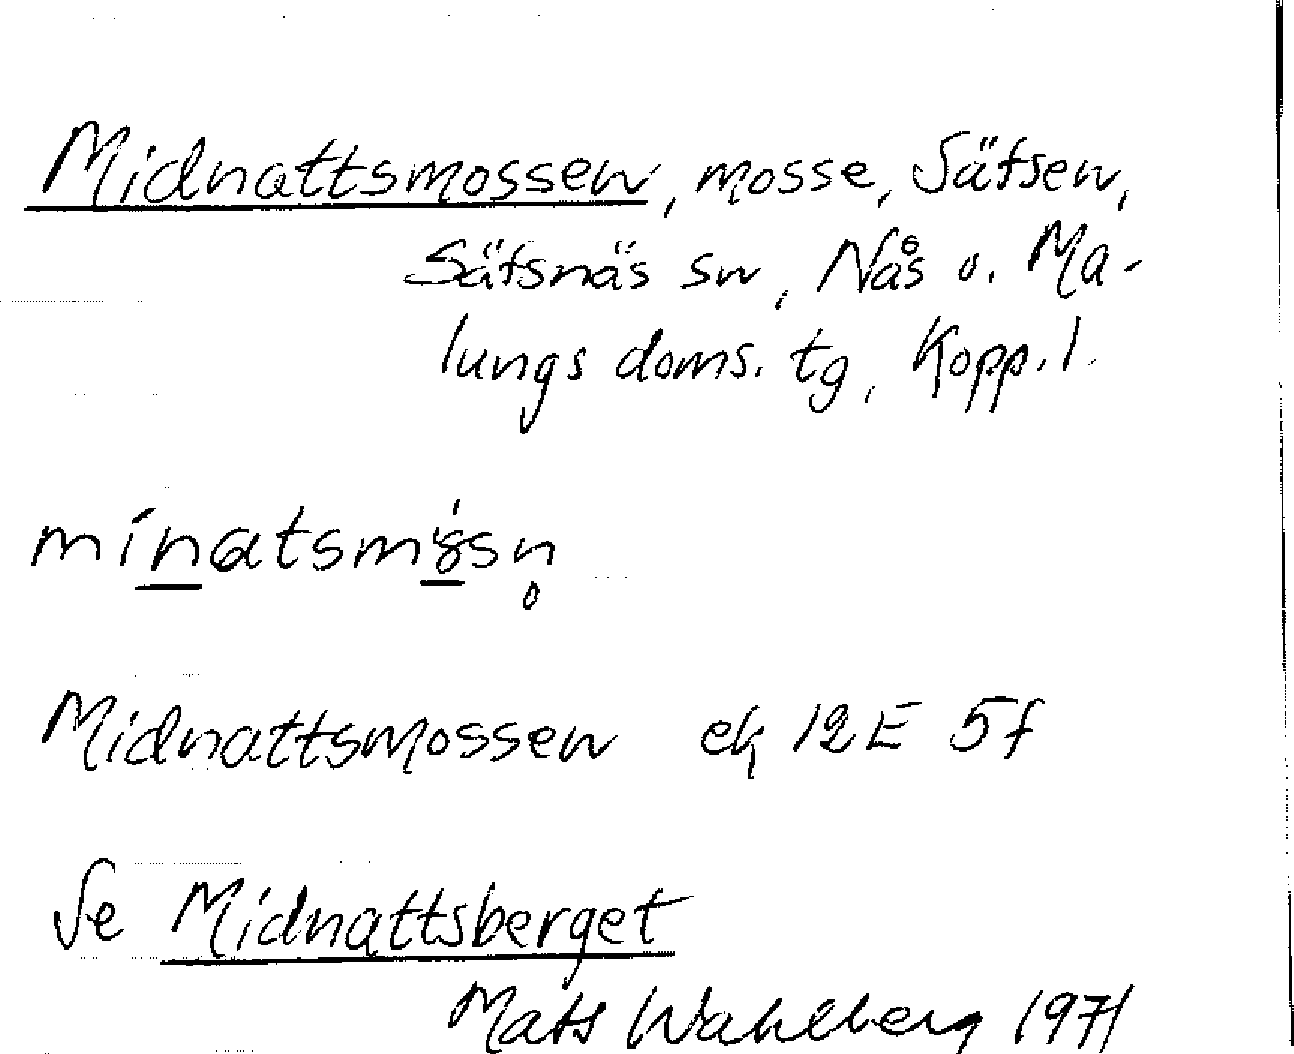 Midnattsmossen, mosse, Säfsen,
Säfsnäs sn, Nås o. Ma-
lungs doms. tg, Kopp. l.
mínatsmö̱́sn̥
Midnattsmossen ek 12E 5f
Se Midnattsberget
Mats Wahlberg 1971